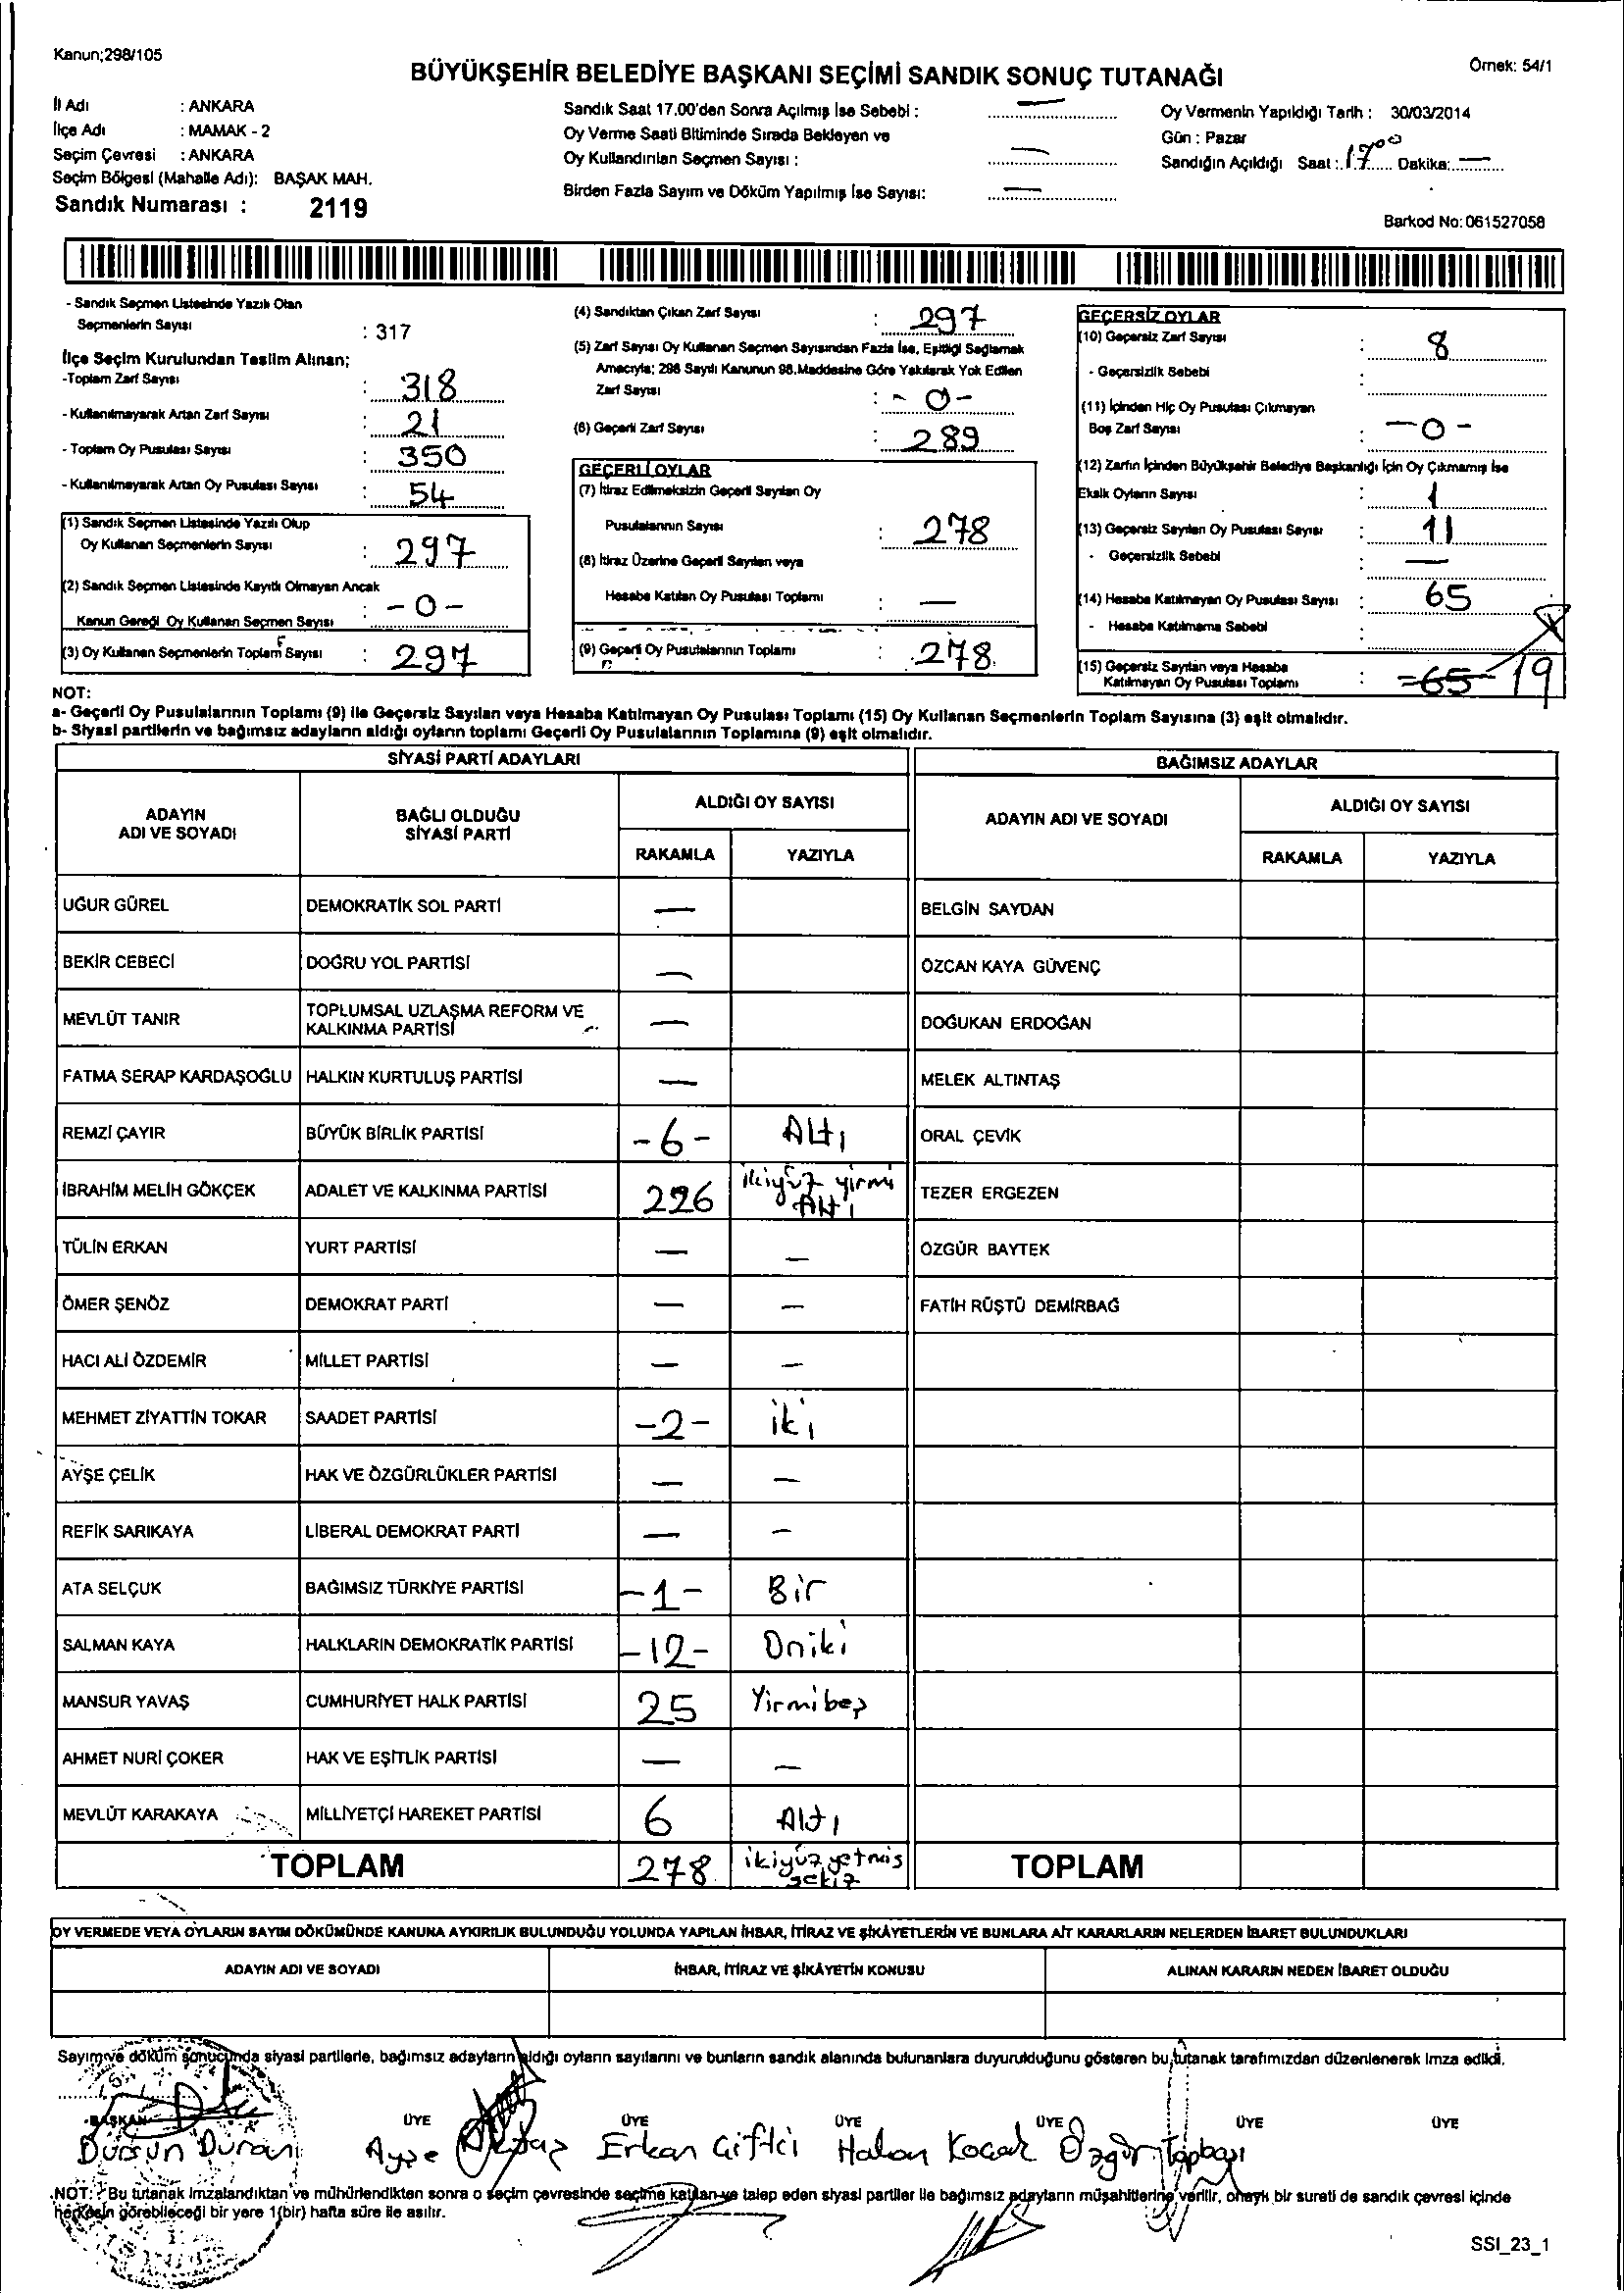 Kanun;298/105
Örnek: 54/1
BÜYÜKŞEHİR BELEDİYE BAŞKANI SEÇİMİ SANDIK SONUÇ TUTANAĞI
İl Adı : ANKARA
İlçe Adı : MAMAK - 2
Seçim Çevresi : ANKARA
Seçim Bölgesi (Mahalle Adı): BAŞAK MAH.
Sandık Numarası : 2119
Sandık Saat 17.00'den Sonra Açılmış İse Sebebi : —
Oy Verme Saati Bitiminde Sırada Bekleyen ve
Oy Kullandırılan Seçmen Sayısı : —
Birden Fazla Sayım ve Döküm Yapılmış İse Sayısı: —
Oy Vermenin Yapıldığı Tarih : 30/03/2014
Gün : Pazar
Sandığın Açıldığı Saat : 17 00 Dakika: —
Barkod No: 061527058
- Sandık Seçmen Listesinde Yazılı Olan
Seçmenlerin Sayısı : 317
İlçe Seçim Kurulundan Teslim Alınan;
-Toplam Zarf Sayısı : 318
- Kullanılmayarak Artan Zarf Sayısı : 21
- Toplam Oy Pusulası Sayısı : 350
- Kullanılmayarak Artan Oy Pusulası Sayısı : 54
(1) Sandık Seçmen Listesinde Yazılı Olup
Oy Kullanan Seçmenlerin Sayısı : 297
(2) Sandık Seçmen Listesinde Kayıtlı Olmayan Ancak
Kanun Gereği Oy Kullanan Seçmen Sayısı : - 0 -
(3) Oy Kullanan Seçmenlerin Toplam Sayısı : 297
(4) Sandıktan Çıkan Zarf Sayısı : 297
(5) Zarf Sayısı Oy Kullanan Seçmen Sayısından Fazla İse, Eşitliği Sağlamak
Amacıyla; 298 Sayılı Kanunun 98.Maddesine Göre Yakılarak Yok Edilen
Zarf Sayısı : - 0 -
(6) Geçerli Zarf Sayısı : 289
GEÇERLİ OYLAR
(7) İtiraz Edilmeksizin Geçerli Sayılan Oy
Pusulalarının Sayısı : 278
(8) İtiraz Üzerine Geçerli Sayılan veya
Hesaba Katılan Oy Pusulası Toplamı : —
(9) Geçerli Oy Pusulalarının Toplamı : 278
GEÇERSİZ OYLAR
(10) Geçersiz Zarf Sayısı : 8
- Geçersizlik Sebebi :
(11) İçinden Hiç Oy Pusulası Çıkmayan
Boş Zarf Sayısı : - 0 -
(12) Zarfın İçinden Büyükşehir Belediye Başkanlığı İçin Oy Çıkmamış İse
Eksik Oyların Sayısı : 1
(13) Geçersiz Sayılan Oy Pusulası Sayısı : 11
- Geçersizlik Sebebi : —
(14) Hesaba Katılmayan Oy Pusulası Sayısı : 65
- Hesaba Katılmama Sebebi :
(15) Geçersiz Sayılan veya Hesaba
Katılmayan Oy Pusulası Toplamı : 65 19
NOT:
a- Geçerli Oy Pusulalarının Toplamı (9) ile Geçersiz Sayılan veya Hesaba Katılmayan Oy Pusulası Toplamı (15) Oy Kullanan Seçmenlerin Toplam Sayısına (3) eşit olmalıdır.
b- Siyasi partilerin ve bağımsız adayların aldığı oyların toplamı Geçerli Oy Pusulalarının Toplamına (9) eşit olmalıdır.
SİYASİ PARTİ ADAYLARI
BAĞIMSIZ ADAYLAR
ADAYIN
ADI VE SOYADI
BAĞLI OLDUĞU
SİYASİ PARTİ
ALDIĞI OY SAYISI
RAKAMLA YAZIYLA
ADAYIN ADI VE SOYADI
ALDIĞI OY SAYISI
RAKAMLA YAZIYLA
UĞUR GÜREL DEMOKRATİK SOL PARTİ — BELGİN SAYDAN
BEKİR CEBECİ DOĞRU YOL PARTİSİ — ÖZCAN KAYA GÜVENÇ
MEVLÜT TANIR TOPLUMSAL UZLAŞMA REFORM VE
KALKINMA PARTİSİ — DOĞUKAN ERDOĞAN
FATMA SERAP KARDAŞOĞLU HALKIN KURTULUŞ PARTİSİ — MELEK ALTINTAŞ
REMZİ ÇAYIR BÜYÜK BİRLİK PARTİSİ - 6 - Altı ORAL ÇEVİK
İBRAHİM MELİH GÖKÇEK ADALET VE KALKINMA PARTİSİ 226 ikiyüz yirmi
Altı TEZER ERGEZEN
TÜLİN ERKAN YURT PARTİSİ — — ÖZGÜR BAYTEK
ÖMER ŞENÖZ DEMOKRAT PARTİ — — FATİH RÜŞTÜ DEMİRBAĞ
HACI ALİ ÖZDEMİR MİLLET PARTİSİ — —
MEHMET ZİYATTİN TOKAR SAADET PARTİSİ - 2 - iki
AYŞE ÇELİK HAK VE ÖZGÜRLÜKLER PARTİSİ — —
REFİK SARIKAYA LİBERAL DEMOKRAT PARTİ — —
ATA SELÇUK BAĞIMSIZ TÜRKİYE PARTİSİ - 1 - Bir
SALMAN KAYA HALKLARIN DEMOKRATİK PARTİSİ - 12 - Oniki
MANSUR YAVAŞ CUMHURİYET HALK PARTİSİ 25 Yirmibeş
AHMET NURİ ÇOKER HAK VE EŞİTLİK PARTİSİ — —
MEVLÜT KARAKAYA MİLLİYETÇİ HAREKET PARTİSİ 6 Altı
TOPLAM 278 ikiyüz yetmis
sekiz TOPLAM
OY VERMEDE VEYA OYLARIN SAYIM DÖKÜMÜNDE KANUNA AYKIRILIK BULUNDUĞU YOLUNDA YAPILAN İHBAR, İTİRAZ VE ŞİKÂYETLERİN VE BUNLARA AİT KARARLARIN NELERDEN İBARET BULUNDUKLARI
ADAYIN ADI VE SOYADI İHBAR, İTİRAZ VE ŞİKÂYETİN KONUSU ALINAN KARARIN NEDEN İBARET OLDUĞU
Sayım ve döküm sonucunda siyasi partilerle, bağımsız adayların aldığı oyların sayılarını ve bunların sandık alanında bulunanlara duyurulduğunu gösteren bu tutanak tarafımızdan düzenlenerek imza edildi.
BAŞKAN ÜYE ÜYE ÜYE ÜYE ÜYE ÜYE
Dursun Duran Ayşe Erkan Çiftçi Hakan Kocak Özgür Topbaşı
NOT: Bu tutanak imzalandıktan ve mühürlendikten sonra o seçim çevresinde seçime katılan ve talep eden siyasi partiler ile bağımsız adayların müşahitlerine verilir, onaylı bir sureti de sandık çevresi içinde
herkesin görebileceği bir yere 1(bir) hafta süre ile asılır.
SSI_23_1